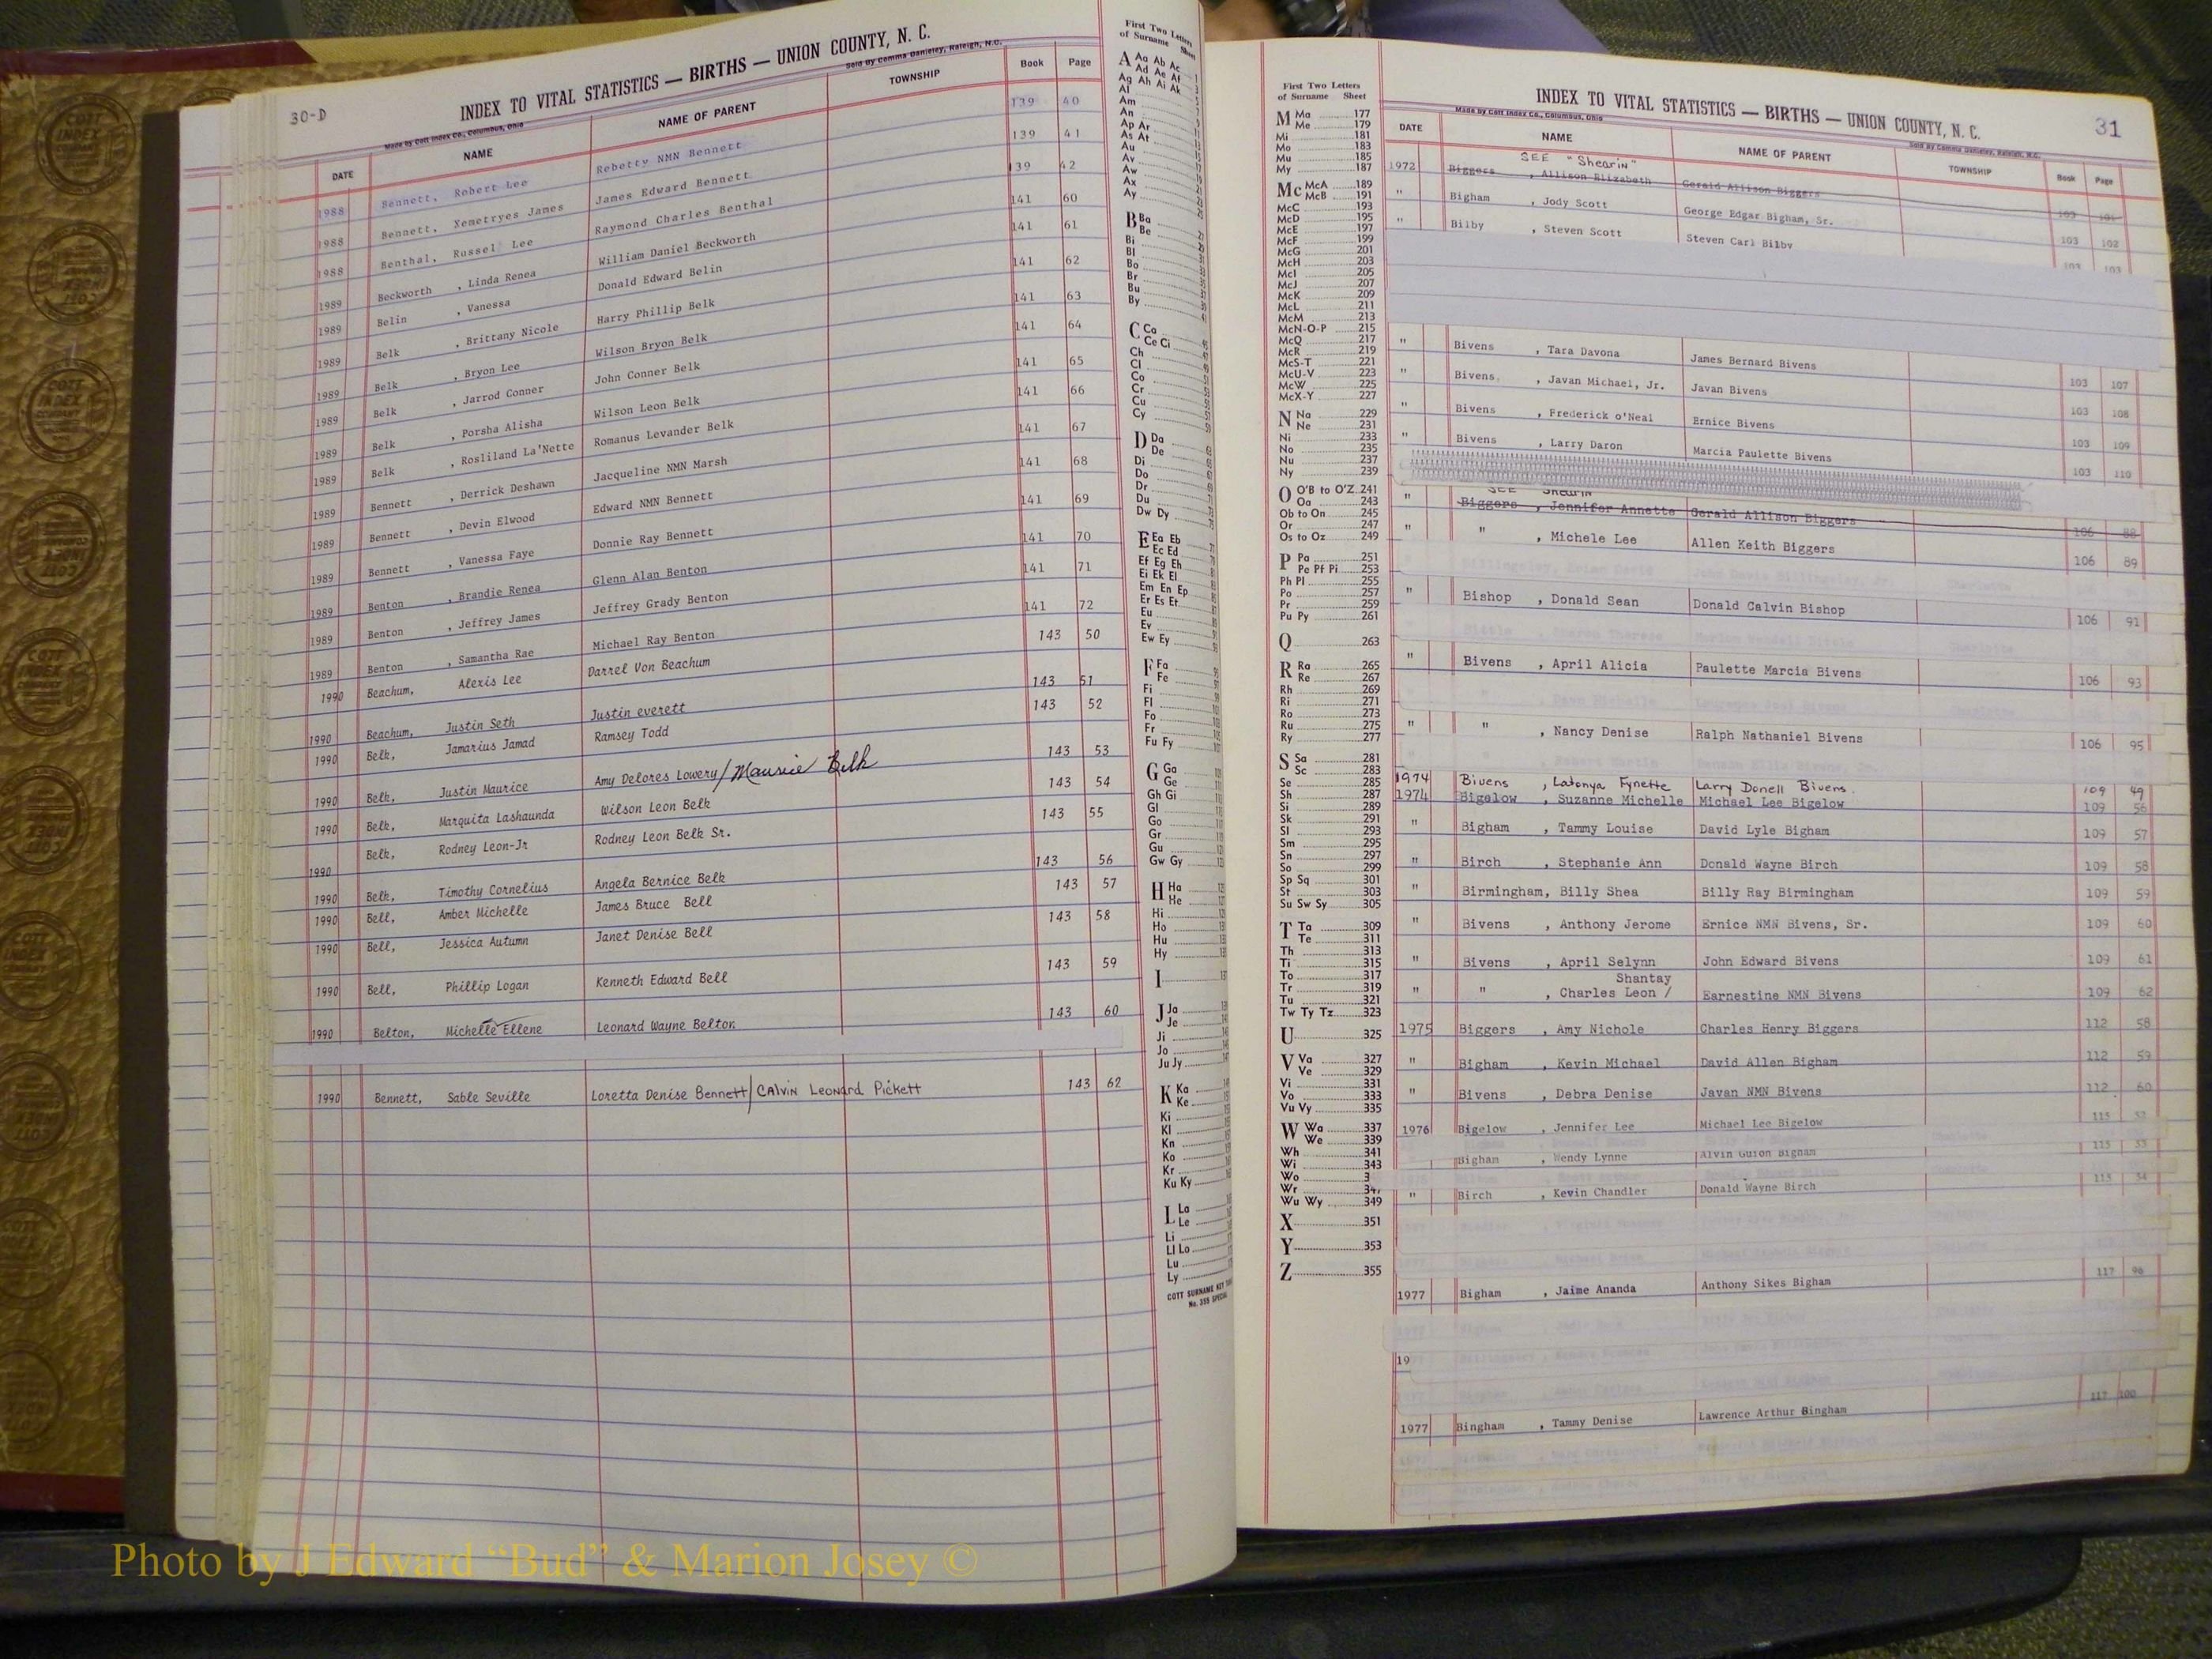 30-D
INDEX TO VITAL STATISTICS — BIRTHS — UNION COUNTY, N. C.
Made by Cott Index Co., Columbus, Ohio
Sold by Comma Danieley, Raleigh, N.C.
DATE NAME NAME OF PARENT TOWNSHIP Book Page
1988 Bennett, Robert Lee Robetty NMN Bennett 139 40
1988 Bennett, Xemetryes James James Edward Bennett 139 41
1988 Benthal, Russel Lee Raymond Charles Benthal 139 42
1989 Beckworth , Linda Renea William Daniel Beckworth 141 60
1989 Belin , Vanessa Donald Edward Belin 141 61
1989 Belk , Brittany Nicole Harry Phillip Belk 141 62
1989 Belk , Bryon Lee Wilson Bryon Belk 141 63
1989 Belk , Jarrod Conner John Conner Belk 141 64
1989 Belk , Porsha Alisha Wilson Leon Belk 141 65
1989 Belk , Rosliland La'Nette Romanus Levander Belk 141 66
1989 Bennett , Derrick Deshawn Jacqueline NMN Marsh 141 67
1989 Bennett , Devin Elwood Edward NMN Bennett 141 68
1989 Bennett , Vanessa Faye Donnie Ray Bennett 141 69
1989 Benton , Brandie Renea Glenn Alan Benton 141 70
1989 Benton , Jeffrey James Jeffrey Grady Benton 141 71
1989 Benton , Samantha Rae Michael Ray Benton 141 72
1990 Beachum, Alexis Lee Darrel Von Beachum 143 50
1990 Beachum, Justin Seth Justin everett 143 51
1990 Belk, Jamarius Jamad Ramsey Todd 143 52
1990 Belk, Justin Maurice Amy Delores Lowery/Maurice Belk 143 53
1990 Belk, Marquita Lashaunda Wilson Leon Belk 143 54
1990 Belk, Rodney Leon-Jr Rodney Leon Belk Sr. 143 55
1990 Belk, Timothy Cornelius Angela Bernice Belk 143 56
1990 Bell, Amber Michelle James Bruce Bell 143 57
1990 Bell, Jessica Autumn Janet Denise Bell 143 58
1990 Bell, Phillip Logan Kenneth Edward Bell 143 59
1990 Belton, Michelle Ellene Leonard Wayne Belton 143 60
1990 Bennett, Sable Seville Loretta Denise Bennett/CAlvin Leonard Pickett 143 62
First Two Letters
of Surname Sheet
A Aa Ab Ac
Ad Ae Af
Ag Ah Ai Ak
Al
Am
An
Ap Ar
As At
Au
Av
Aw
Ax
Ay
B Ba
Be
Bi
Bl
Bo
Br
Bu
By
C Ca
Ce Ci
Ch
Cl
Co
Cr
Cu
Cy
D Da
De
Di
Do
Dr
Du
Dw Dy
E Ea Eb
Ec Ed
Ef Eg Eh
Ei Ek El
Em En Ep
Er Es Et
Eu
Ev
Ew Ey
F Fa
Fe
Fi
Fl
Fo
Fr
Fu Fy
G Ga
Ge
Gh Gi
Gl
Go
Gr
Gu
Gw Gy
H Ha
He
Hi
Ho
Hu
Hy
I
J Ja
Je
Ji
Jo
Ju Jy
K Ka
Ke
Ki
Kl
Kn
Ko
Kr
Ku Ky
L La
Le
Li
Ll Lo
Lu
Ly
COTT SURNAME KEY
No. 355 SPECIAL
First Two Letters
of Surname Sheet
M Ma 177
Me 179
Mi 181
Mo 183
Mu 185
My 187
Mc McA 189
McB 191
McC 193
McD 195
McE 197
McF 199
McG 201
McH 203
McI 205
McJ 207
McK 209
McL 211
McM 213
McN-O-P 215
McQ 217
McR 219
McS-T 221
McU-V 223
McW 225
McX-Y 227
N Na 229
Ne 231
Ni 233
No 235
Nu 237
Ny 239
O O'B to O'Z 241
Oa 243
Ob to On 245
Or 247
Os to Oz 249
P Pa 251
Pe Pf Pi 253
Ph Pl 255
Po 257
Pr 259
Pu Py 261
Q 263
R Ra 265
Re 267
Rh 269
Ri 271
Ro 273
Ru 275
Ry 277
S Sa 281
Sc 283
Se 285
Sh 287
Si 289
Sk 291
Sl 293
Sm 295
Sn 297
So 299
Sp Sq 301
St 303
Su Sw Sy 305
T Ta 309
Te 311
Th 313
Ti 315
To 317
Tr 319
Tu 321
Tw Ty Tz 323
U 325
V Va 327
Ve 329
Vi 331
Vo 333
Vu Vy 335
W Wa 337
We 339
Wh 341
Wi 343
Wo 3
Wr 34
Wu Wy 349
X 351
Y 353
Z 355
INDEX TO VITAL STATISTICS — BIRTHS — UNION COUNTY, N. C.
31
Made by Cott Index Co., Columbus, Ohio
Sold by Comma Danieley, Raleigh, N.C.
DATE NAME NAME OF PARENT TOWNSHIP Book Page
SEE "Shearin"
1972 Biggers , Allison Elizabeth Gerald Allison Biggers 103 101
" Bigham , Jody Scott George Edgar Bigham, Sr. 103 102
" Bilby , Steven Scott Steven Carl Bilby 103 103
" Bivens , Tara Davona James Bernard Bivens 103 107
" Bivens, , Javan Michael, Jr. Javan Bivens 103 108
" Bivens , Frederick o'Neal Ernice Bivens 103 109
" Bivens , Larry Daron Marcia Paulette Bivens 103 110
SEE Shearin
" Biggers , Jennifer Annette Gerald Allison Biggers 106 88
" " , Michele Lee Allen Keith Biggers 106 89
" Bishop , Donald Sean Donald Calvin Bishop 106 91
" Bivens , April Alicia Paulette Marcia Bivens 106 93
" " , Nancy Denise Ralph Nathaniel Bivens 106 95
1974 Bivens , Latonya Fynette Larry Donell Bivens. 109 49
1974 Bigelow , Suzanne Michelle Michael Lee Bigelow 109 56
" Bigham , Tammy Louise David Lyle Bigham 109 57
" Birch , Stephanie Ann Donald Wayne Birch 109 58
" Birmingham, Billy Shea Billy Ray Birmingham 109 59
" Bivens , Anthony Jerome Ernice NMN Bivens, Sr. 109 60
" Bivens , April Selynn John Edward Bivens 109 61
Shantay
" " , Charles Leon / Earnestine NMN Bivens 109 62
1975 Biggers , Amy Nichole Charles Henry Biggers 112 58
" Bigham , Kevin Michael David Allen Bigham 112 59
" Bivens , Debra Denise Javan NMN Bivens 112 60
1976 Bigelow , Jennifer Lee Michael Lee Bigelow 115 52
Bigham , Wendy Lynne Alvin Guion Bigham 115 53
" Birch , Kevin Chandler Donald Wayne Birch 115 54
1977 Bigham , Jaime Ananda Anthony Sikes Bigham 117 96
19
1977 Bingham , Tammy Denise Lawrence Arthur Bingham 117 100
Photo by J Edward “Bud” & Marion Josey ©